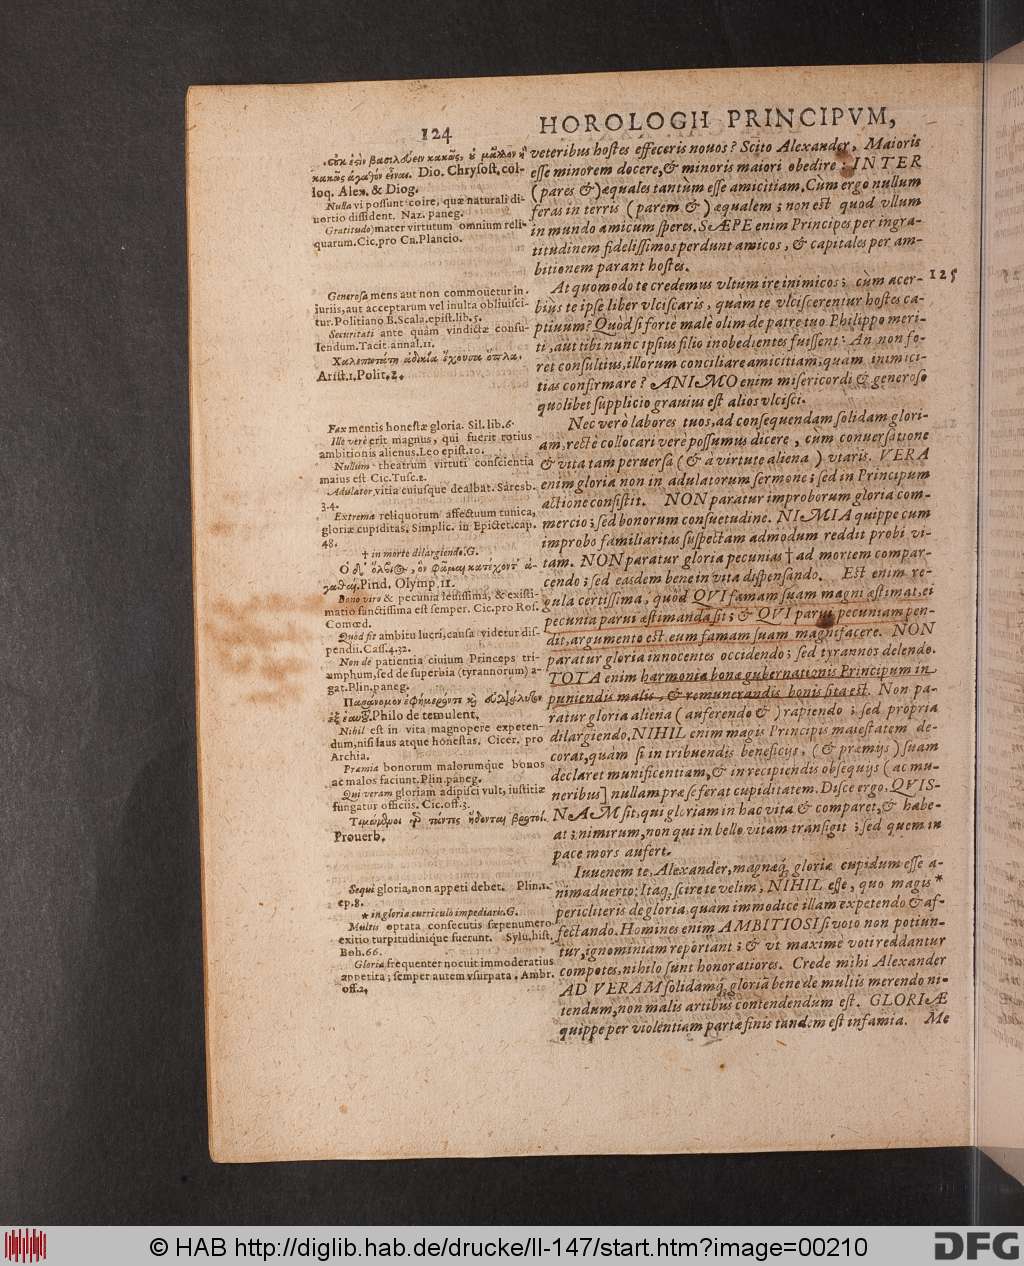 124
HOROLOGII PRINCIPVM,
κακῶς Dio. Chrysost. col-
loq. Alex. & Diog.
Nulla vi possunt coire, quæ naturali di-
uortio dissident. Naz. paneg.
Gratitudo mater virtutum omnium reli-
quarum. Cic. pro Cn. Plancio.
Generosa mens aut non commouetur in-
iuriis, aut acceptarum vel inulta obliuisci-
tur. Politiano B. Scala. epist. lib. 5.
Securitati ante quàm vindictæ consu-
lendum. Tacit. annal. 11.
Χαλεπωτάτη ἀδικία ἔχουσα ὅπλα.
Arist. 1. Polit. 2.
Fax mentis honestæ gloria. Sil. lib. 6.
Ille verè erit magnus, qui fuerit totius
ambitionis alienus. Leo epist. 10.
Nullum theatrum virtuti conscientia
maius est Cic. Tusc. 2.
Adulator, vitia cuiusque dealbat. Saresb.
3. 4.
Extrema reliquorum affectuum tunica,
gloriæ cupiditas. Simplic. in Epictet. cap.
48.
† in morte dilargiendo. G.
Pind. Olymp. 11.
Bono viro & pecunia leuissima, & existi-
matio sanctissima est semper. Cic. pro Ros.
Comœd.
Quod fit ambitu lucri, causa videtur dis-
pendii. Cass. 4. 32.
Non de patientia ciuium Princeps tri-
umphum, sed de superbia (tyrannorum) a-
gat. Plin. paneg.
Philo de temulent.
Nihil est in vita magnopere expeten-
dum, nisi laus atque honestas. Cicer. pro
Archia.
Præmia bonorum malorumque bonos
ac malos faciunt. Plin. paneg.
Qui veram gloriam adipisci vult, iustitiæ
fungatur officiis. Cic. off. 3.
Prouerb.
Sequi gloria, non appeti debet. Plin. 1.
ep. 8.
* in gloriæ curriculo impediaris. G.
Multis optata consecutis sæpenumero
exitio turpitudinique fuerunt. Sylu. hist.
Boh. 66.
Gloria frequenter nocuit immoderatius
appetita; semper autem vsurpata. Ambr.
off. 2.
veteribus hostes effeceris nouos? Scito Alexander, Maioris
esse minorem docere, & minoris maiori obedire: INTER
(pares &) æquales tantum esse amicitiam. Cùm ergo nullum
feras in terris (parem &) æqualem; non est quod vllum
in mundo amicum speres. SÆPE enim Principes per ingra-
titudinem fidelissimos perdunt amicos, & capitales per am-
bitionem parant hostes.
At quomodo te credemus vltum ire inimicos; cùm acer-
125
biùs te ipse liber vlciscaris, quàm te vlciscerentur hostes ca-
ptiuum? Quòd si forte malè olim de patre tuo Philippo meri-
ti, aut tibi nunc ipsius filio inobedientes fuissent: An non fo-
ret consultius, illorum conciliare amicitiam, quàm inimici-
tias confirmare? ANIMO enim misericordi & generoso
quolibet supplicio grauius est alios vlcisci.
Nec verò labores tuos, ad consequendam solidam glori-
am, rectè collocari verè possumus dicere, cùm conuersatione
& vita tam peruersa (& à virtute aliena) vtaris. VERA
enim gloria non in adulatorum sermone; sed in Principum
actione consistit. NON paratur improborum gloria com-
mercio; sed bonorum consuetudine. NIMIA quippe cum
improbo familiaritas suspectam admodum reddit probi vi-
tam. NON paratur gloria pecunias † ad mortem compar-
cendo; sed easdem bene in vita dispensando. Est enim re-
gula certissima, quòd QVI famam suam magni æstimat, ei
pecunia parui æstimanda sit; & QVI parui pecuniam pen-
dit, argumento est eum famam suam magnifacere. NON
paratur gloria innocentes occidendo; sed tyrannos delendo.
TOTA enim harmonia bonæ gubernationis Principum in
puniendis malis, & remunerandis bonis sita est. Non pa-
ratur gloria aliena (auferendo &) rapiendo; sed propria
dilargiendo. NIHIL enim magis Principis maiestatem de-
corat, quàm si in tribuendis beneficijs, (& præmijs) suam
declaret munificentiam, & in recipiendis obsequijs (ac mu-
neribus) nullam præ se ferat cupiditatem. Disce ergo, QVIS-
NAM sit, qui gloriam in hac vita & comparet, & habe-
at: nimirum, non qui in bello vitam transigit; sed quem in
pace mors aufert.
Iuuenem te, Alexander, magnæq; gloriæ cupidum esse a-
nimaduerto: Itaq; scire te velim, NIHIL esse, quo magis *
pericliteris de gloria, quàm immodicè illam expetendo & af-
fectando. Homines enim AMBITIOSI si voto non potiun-
tur, ignominiam reportant; & vt maximè voti reddantur
compotes, nihilo sunt honoratiores. Crede mihi Alexander
AD VERAM solidamq; gloriā bene de multis merendo ni-
tendum, non malis artibus contendendum est. GLORIÆ
quippe per violentiam partæ finis tandem est infamia. Me
© HAB http://diglib.hab.de/drucke/ll-147/start.htm?image=00210
DFG